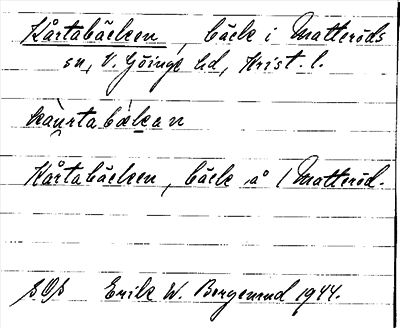 Kårtabäcken, bäck i Matteröds
sn, V. Göinge hd, Krist. l.
kau̯rtabækan
Kårtabäcken, bäck å 1 Matteröd.
SOS Erik W. Bergerud 1944.